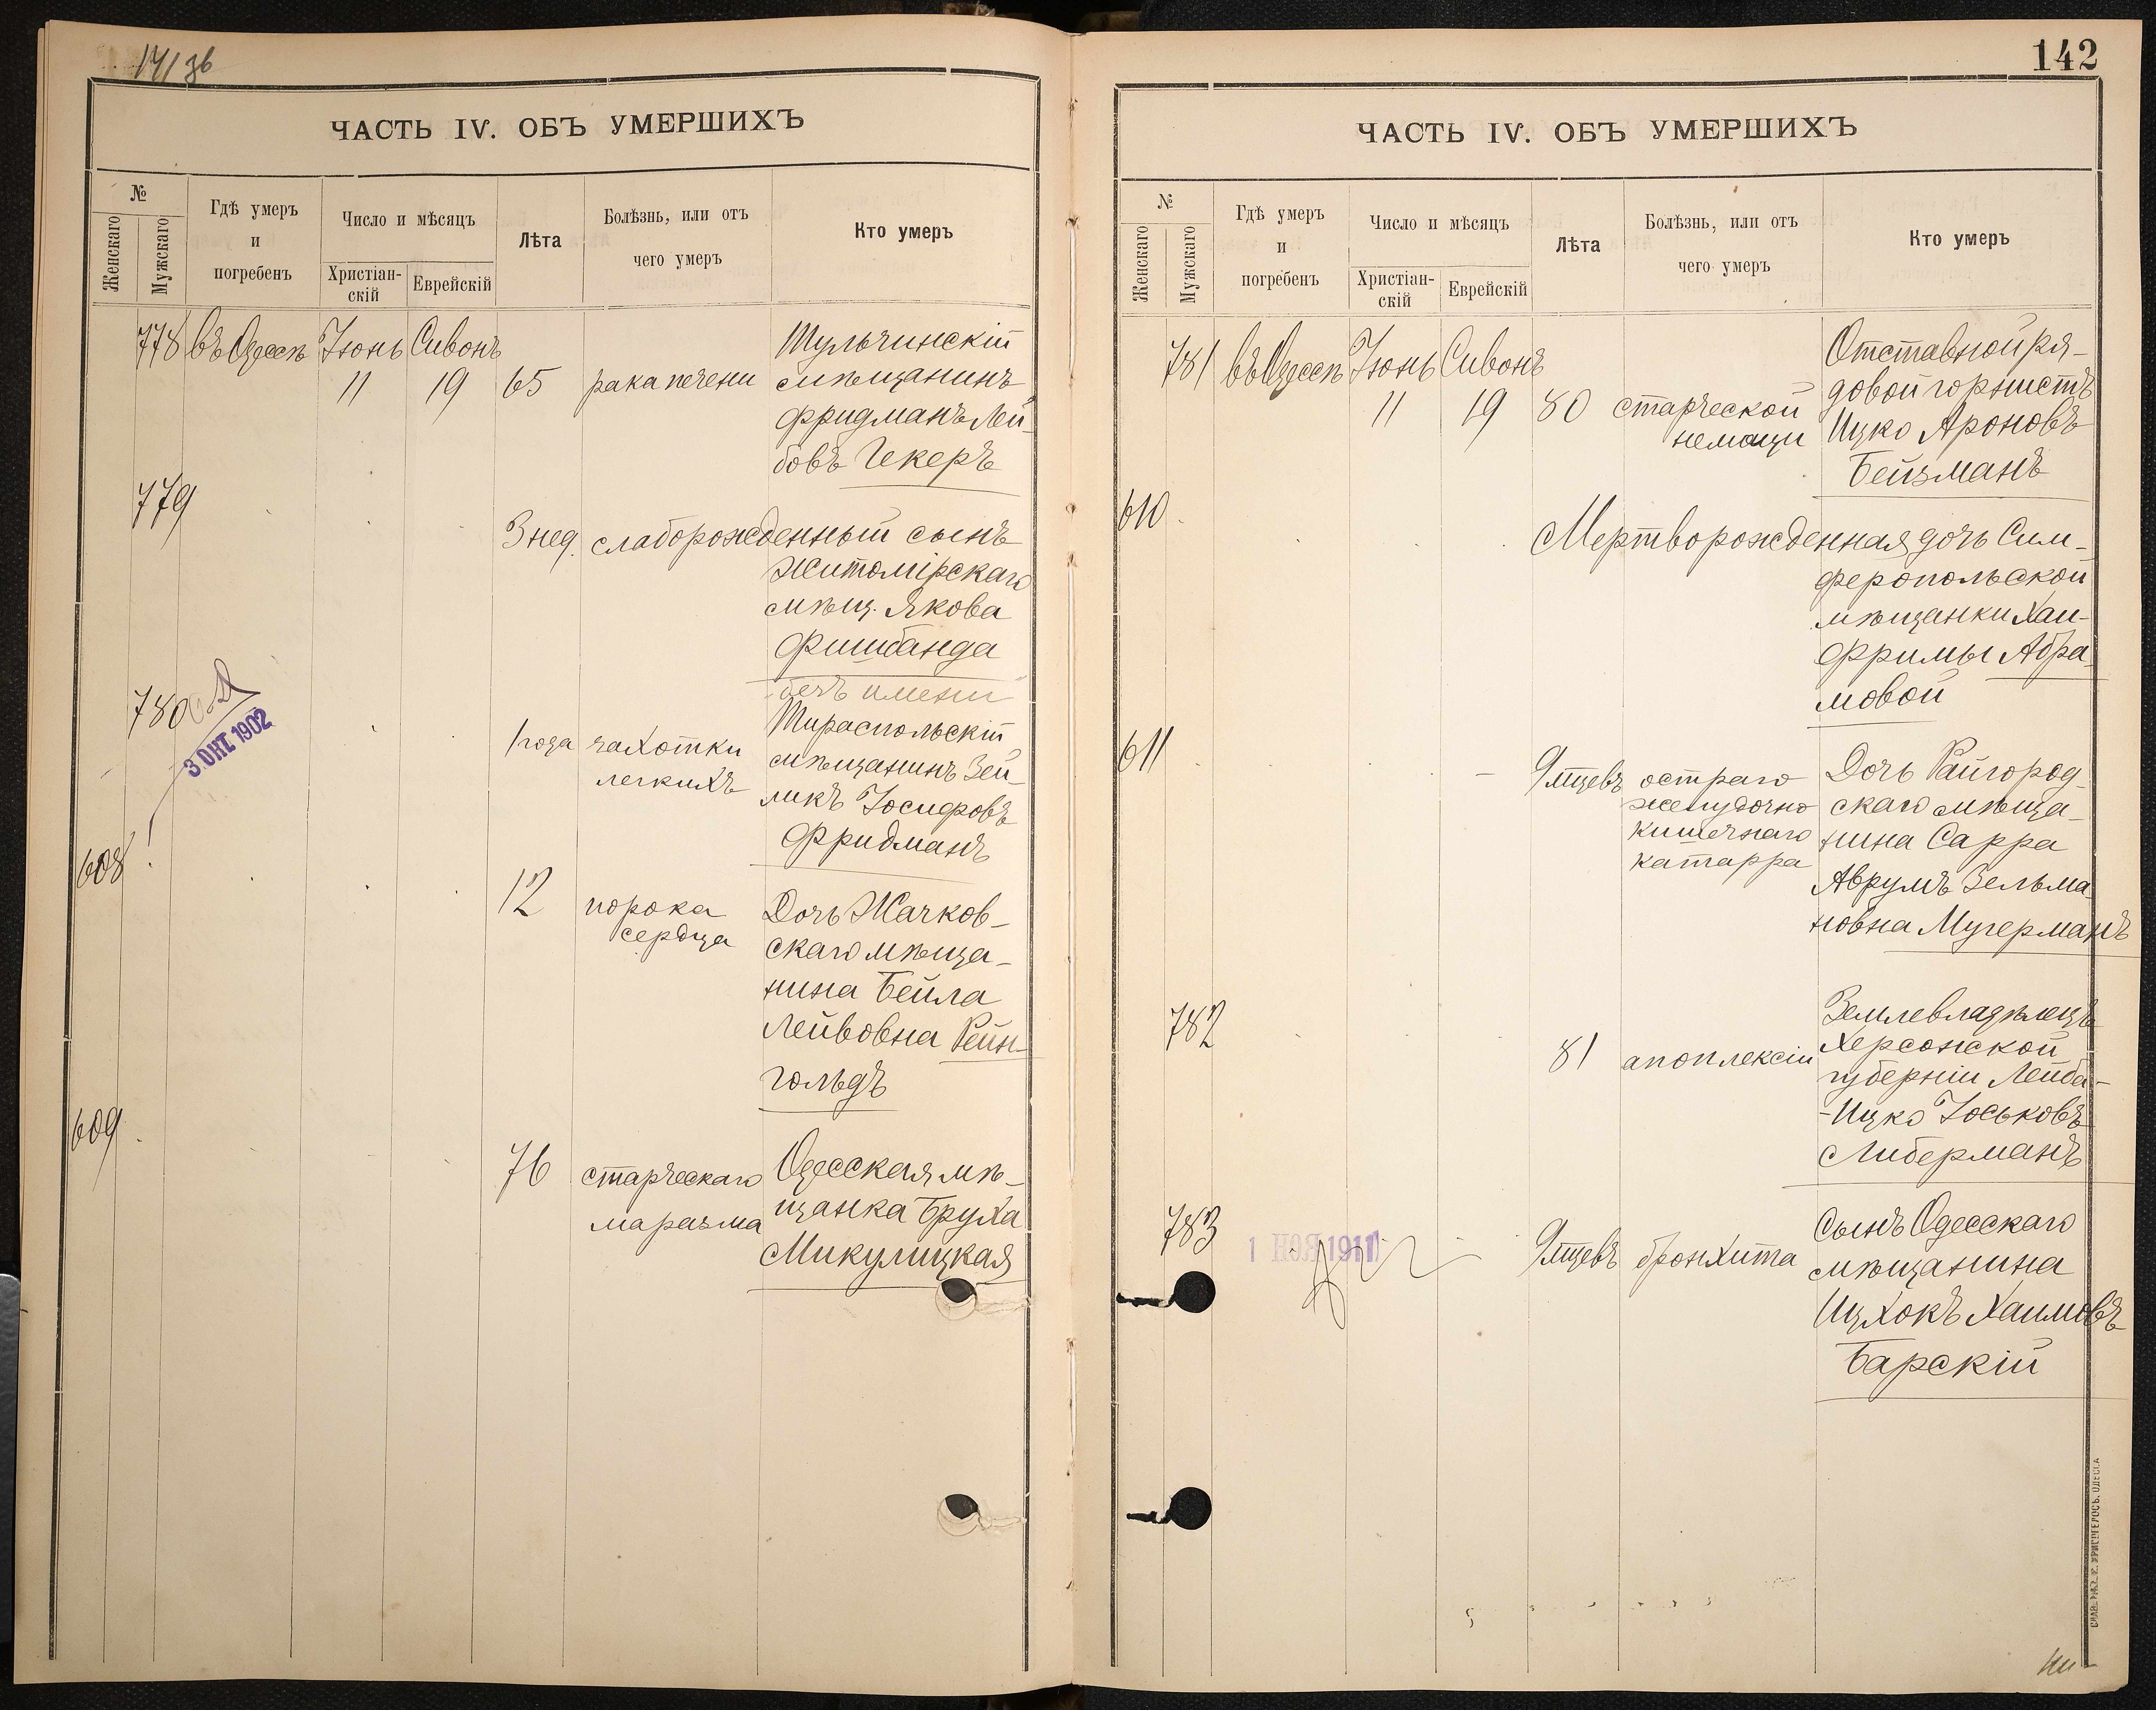 141 об
ЧАСТЬ IV. ОБЪ УМЕРШИХЪ
№
Женскаго
Мужскаго
Гдѣ умеръ
и
погребенъ
Число и мѣсяцъ
Христіан-
скій
Еврейскій
Лѣта
Болѣзнь, или отъ
чего умеръ
Кто умеръ
778 въ Одессѣ Іюнь Сивонъ
11 19 65 рака печени
Тульчинскій
мѣщанинъ
Фридманъ Лей-
бовъ Чекеръ
779
3 нед. слаборожденный сынъ
Житомірскаго
мѣщ. Якова
Фишбанда
безъ имени
780
3. ОКТ 1902
1 года чахотки
легкихъ
Тираспольскій
мѣщанинъ Зей-
ликъ Іосифовъ
Фридманъ
608
12 порока
сердца
Дочь Жачков-
скаго мѣща-
нина Бейла
Лейвовна Рейн-
гольдъ
609
76 старческаго
маразма
Одесская мѣ-
щанка Бруха
Микулицкая
142
ЧАСТЬ IV. ОБЪ УМЕРШИХЪ
№
Женскаго
Мужскаго
Гдѣ умеръ
и
погребенъ
Число и мѣсяцъ
Христіан-
скій
Еврейскій
Лѣта
Болѣзнь, или отъ
чего умеръ
Кто умеръ
781 въ Одессѣ Іюнь Сивонъ
11 19 80 старческой
немощи
Отставной ря-
довой горнистъ
Ицко Ароновъ
Бейзманъ
610
Мертворожденная дочь Сим-
феропольской
мѣщанки Хаи-
Фримы Абра-
мовой
611
9 мцевъ остраго
желудочно
кишечнаго
катарра
Дочь Райгород-
скаго мѣща-
нина Сарра
Аврумъ Зельма-
новна Мучерманъ
782
81 апоплексіи
Землевладѣлецъ
Херсонской
губерніи Лейба-
-Ицко Іоськовъ
Либерманъ
783
1 НОЯ 1911
9 мцевъ бронхита
Сынъ Одесскаго
мѣщанина
Ицхокъ Хаимовъ
Барскій